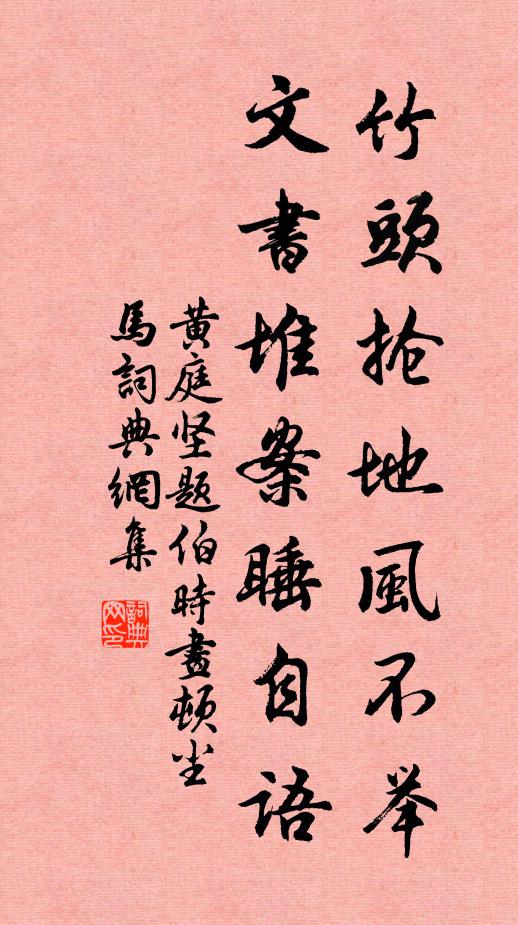 竹頭抢地風不举
文書堆案睡自語
黄庭坚题伯時畫顿尘
馬詞典網集
詞典网印